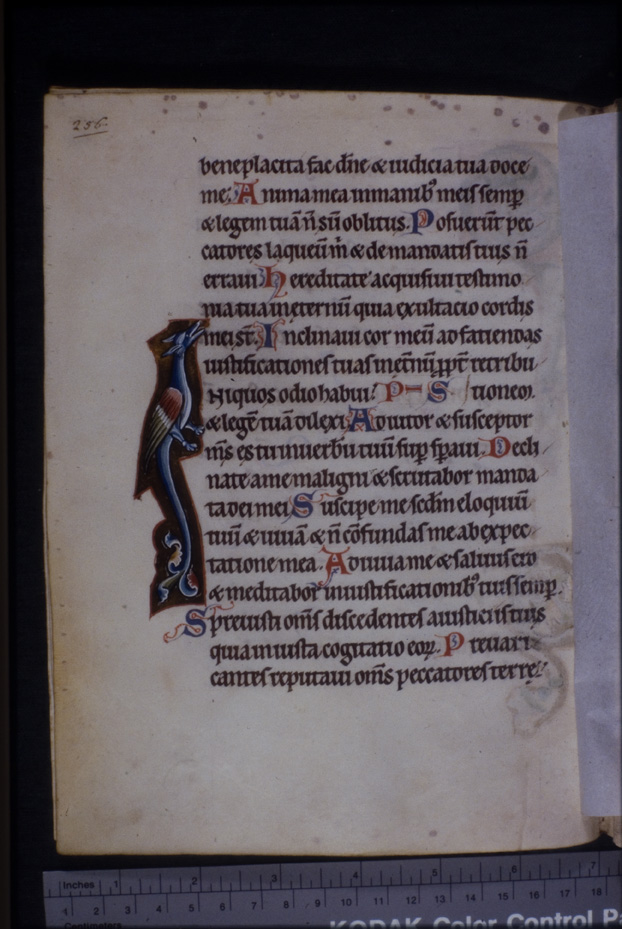 256
beneplacita fac dn̄e & iudicia tua doce
me; Anima mea inmanib⁹ meis semp̱
& legem tuā n̄ sū oblitus. Posuerūt pec
catores laqueū m̄ & de mandatis tuis n̄
erraui Hereditate acquisiui testimo
nia tua ineternū quia exultacio cordis
mei st̄. Inclinaui cor meū ad faciendas
iustificationes tuas
retribu
Niquos odio habui! P S tionem.
& legē tuā dilexi Adiutor & susceptor
m̄s es tu inuerbū tuū sup̱ sp̱aui. Decli
nate ame maligni & scrutabor manda
ta dei mei Suscipe me scdm̄ eloquiū
tuū & uiuā & n̄ cōfundas me abexpec
tatione mea. Adiuua me & saluus ero
& meditabor iniustificationib⁹ tuis semp̱.
Spreuisti om̄s discedentes aiusticiis tuis
quia iniusta cogitatio eoꝝ. Preuari
cantes reputaui om̄s peccatores terre!
Inches 1 2 3 4 5 6 7
1 2 3 4 5 6 7 8 9 10 11 12 13 14 15 16 17 18
Centimetres
KODAK Color Control Pa